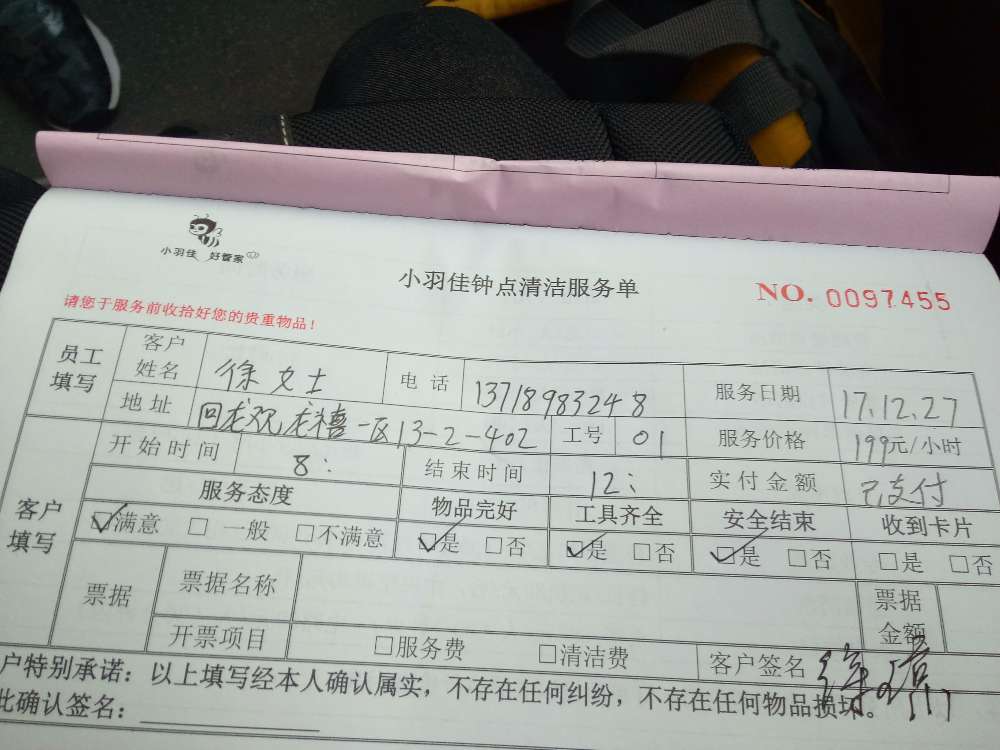 小羽佳 好管家
小羽佳钟点清洁服务单
NO. 0097455
请您于服务前收拾好您的贵重物品!
员工填写 客户姓名 徐女士 电话 13718983248 服务日期 17.12.27
地址 回龙观龙禧一区13-2-402 工号 01 服务价格 199元/小时
客户填写 开始时间 8: 结束时间 12: 实付金额 已支付
服务态度 物品完好 工具齐全 安全结束 收到卡片
☑满意 □一般 □不满意 ☑是 □否 ☑是 □否 ☑是 □否 □是 □否
票据 票据名称 票据金额
开票项目 □服务费 □清洁费 客户签名 徐
户特别承诺:以上填写经本人确认属实,不存在任何纠纷,不存在任何物品损坏。
此确认签名: